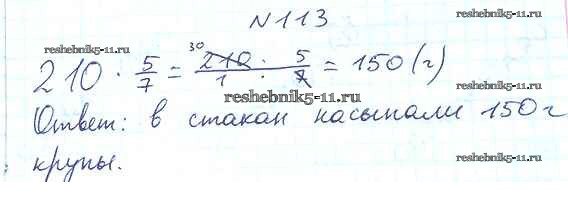 №113
reshebnik5-11.ru reshebnik5-11.ru
210 · 5/7 = 30 210 · 5 / 1 · 7 = 150 (г)
reshebnik5-11.ru
Ответ: в стакан насыпали 150 г
крупы.
reshebnik5-11.ru